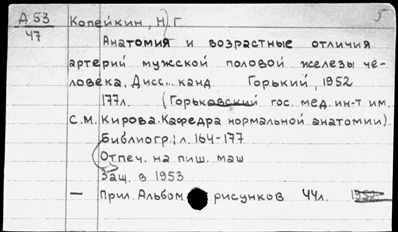 Д 53
47
Копейкин, Н. Г. 5
Анатомия и возрастные отличия
артерий мужской половой железы че-
ловека. Дисс... канд. Горький, 1952
177л. (Горьковский гос. мед. ин-т им.
С.М. Кирова. Кафедра нормальной анатомии).
Библиогр.: л. 164-177
Отпеч. на пиш. маш
Защ. в 1953
— Прил. Альбом рисунков. 44л. 1952